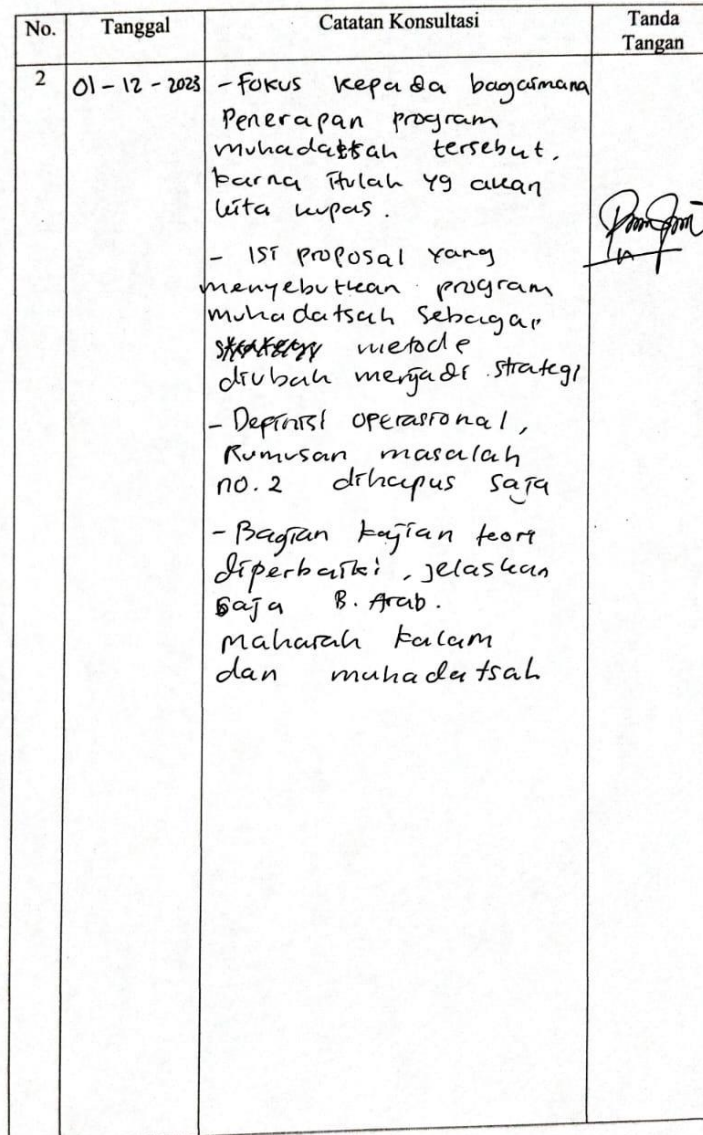 No. Tanggal Catatan Konsultasi Tanda Tangan
2 01-12-2023 - Fokus kepada bagaimana
Penerapan program
muhadatsah tersebut.
karna itulah yg akan
kita kupas.
- Isi proposal yang
menyebutkan program
muhadatsah sebagai
metode
diubah menjadi strategi
- Depinisi operasional,
Rumusan masalah
no. 2 dihapus saja
- Bagian kajian teori
diperbaiki, jelaskan
saja B. Arab.
maharah kalam
dan muhadatsah